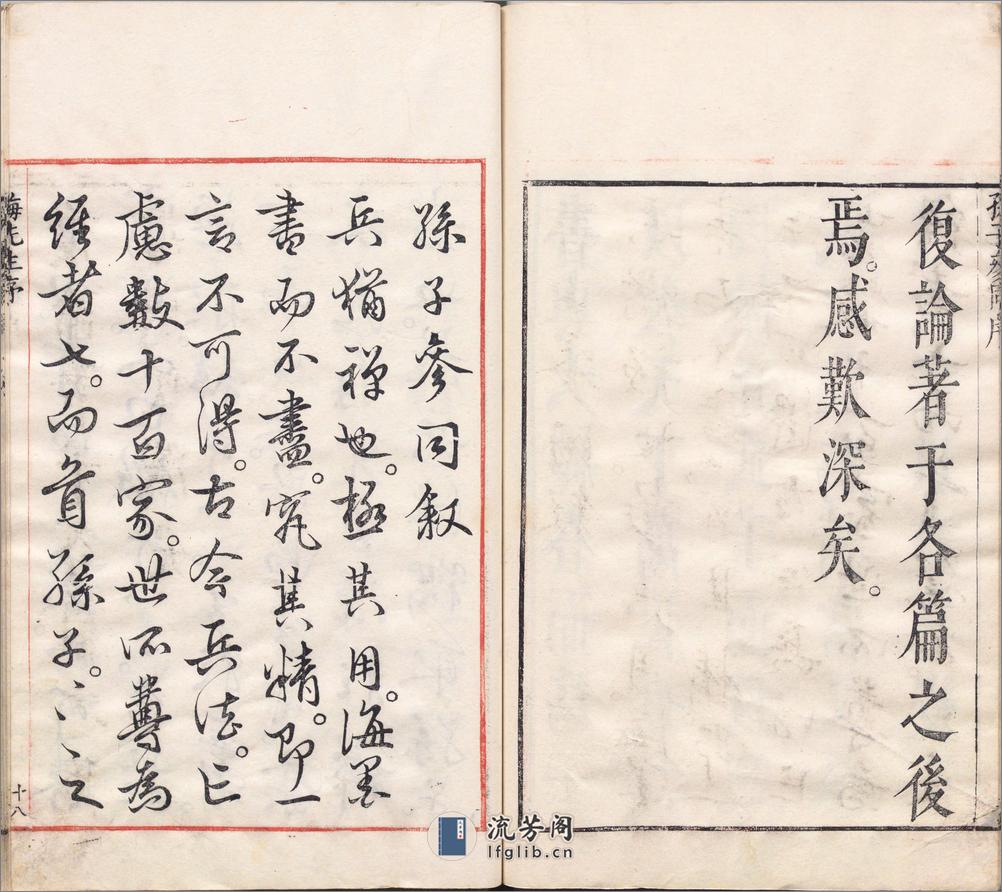 復論著于各篇之後
焉。感歎深矣。
孫子參同敍
兵猶禪也。極其用。海墨
書而不盡。究其精。即一
言不可得。古今兵法。亡
慮數十百家。世所尊為
經者七。而首孫子。〻之
梅先生序
十八
流芳阁
lfglib.cn